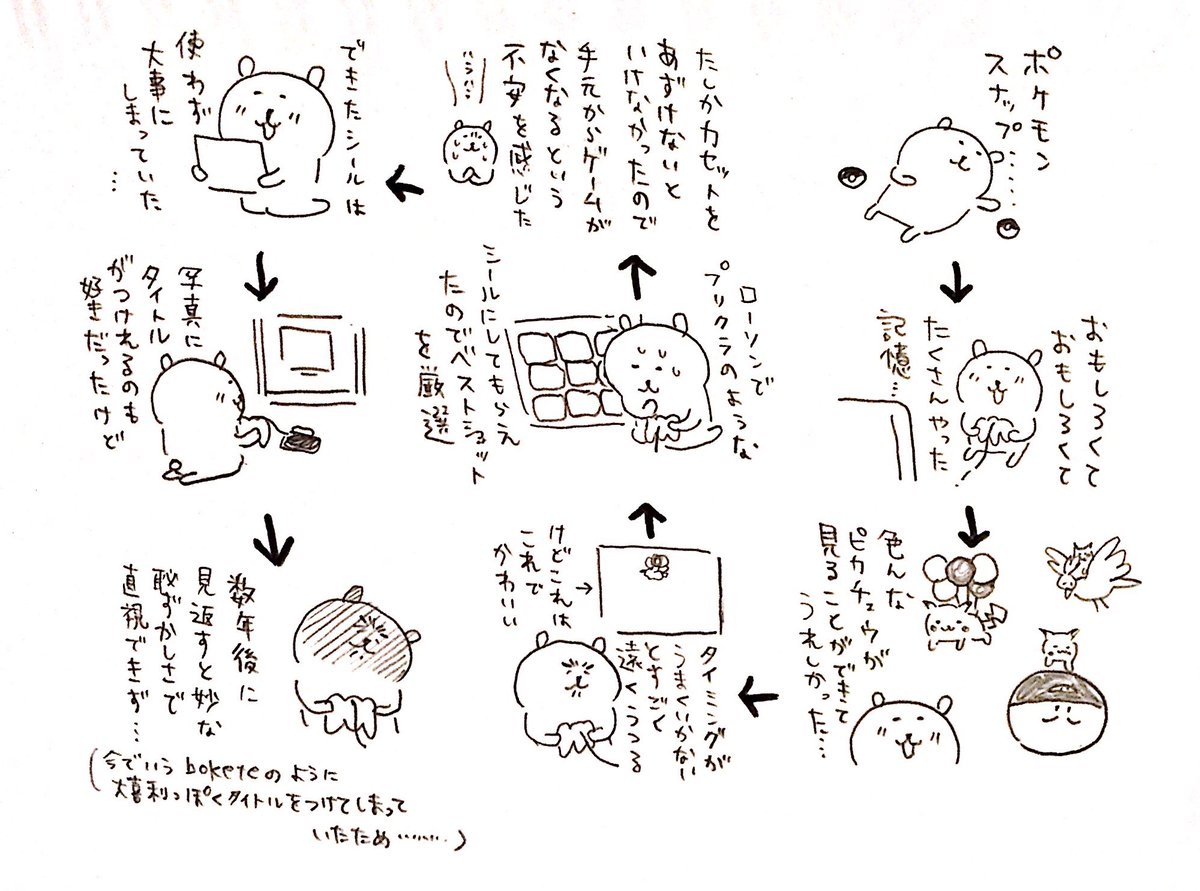 ポケモン
スナップ……
おもしろくて
おもしろくて
たくさんやった
記憶…
色んな
ピカチュウが
見ることができて
うれしかった…
タイミングが
うまくいかない
とすごく
遠くうつる
けどこれは
これで
かわいい
→
ローソンで
プリクラのような
シールにしてもらえ
たのでベストショット
を厳選
たしかカセットを
あずけないと
いけなかったので
手元からゲームが
なくなるという
不安を感じた
ハラハラ…
できたシールは
使わず
大事に
しまっていた
…
写真に
タイトル
がつけれるのも
好きだったけど
数年後に
見返すと妙な
恥ずかしさで
直視できず…
(今でいうboketeのように
大喜利っぽくタイトルをつけてしまって
いたため………)